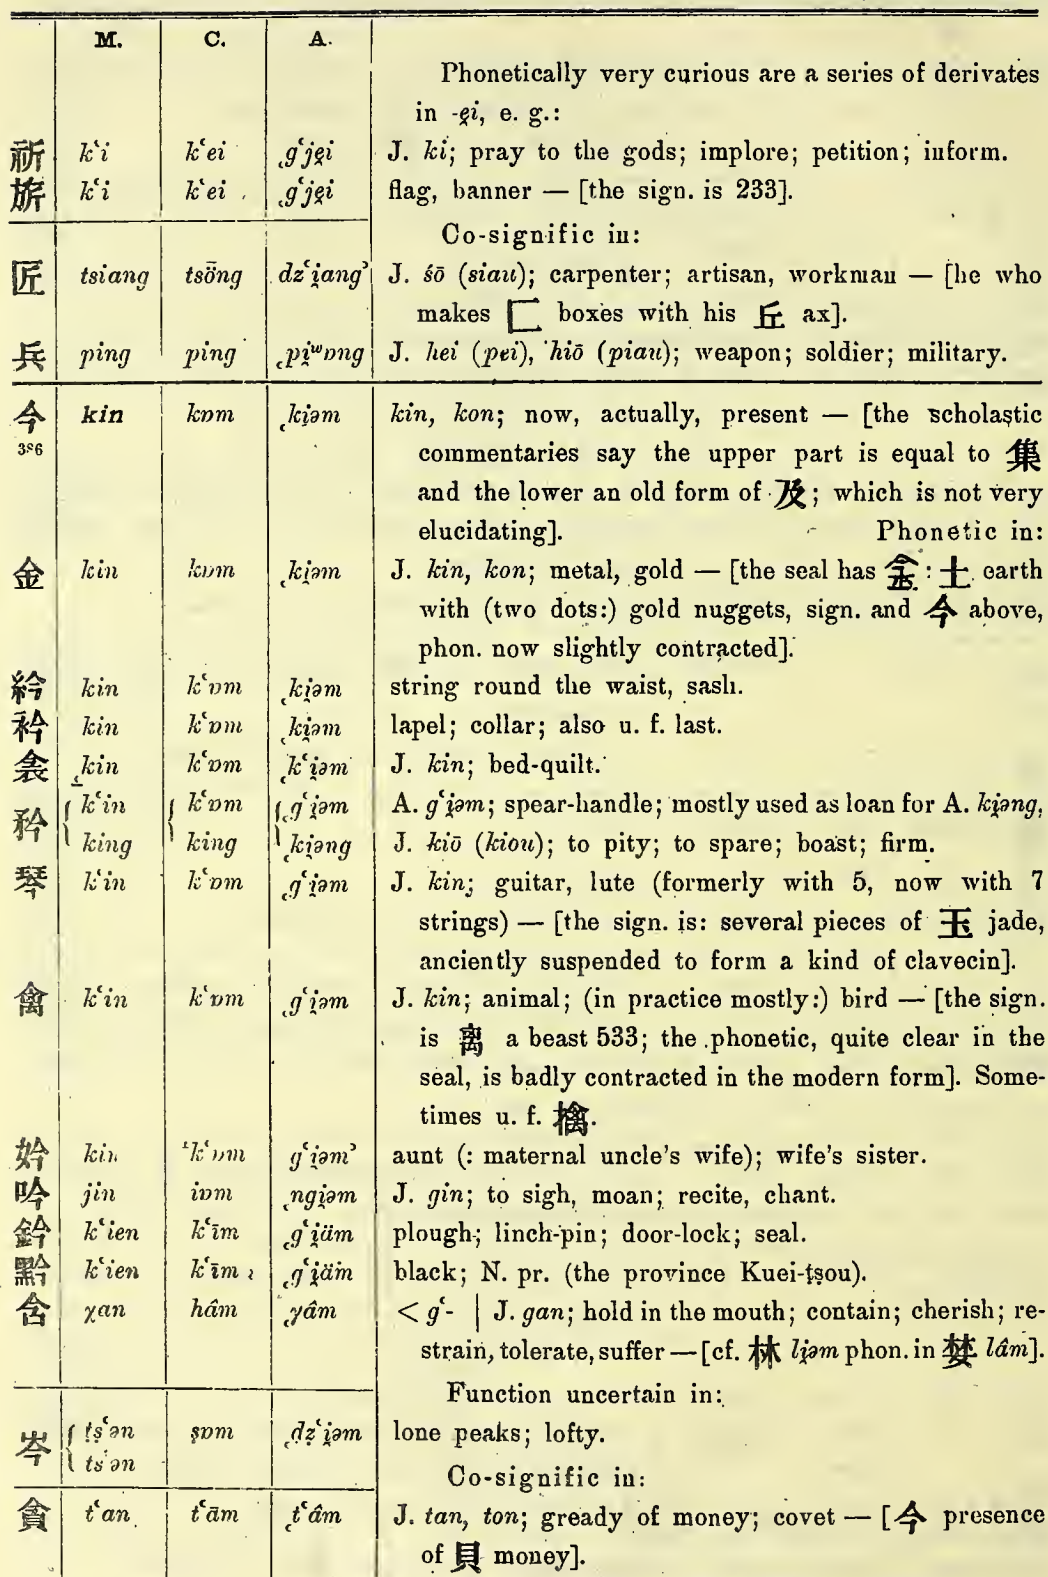 M. C. A.
Phonetically very curious are a series of derivates
in -ę̯i, e. g.:
祈 k‘i k‘ei ˓g‘ję̯i J. ki; pray to the gods; implore; petition; inform.
旂 k‘i k‘ei ˓g‘ję̯i flag, banner — [the sign. is 233].
Co-signific in:
匠 tsiang tsōng dz‘i̯ang˒ J. śō (siau); carpenter; artisan, workman — [he who
makes 匚 boxes with his 斤 ax].
兵 ping ping ˓pi̯ʷɒng J. hei (pei), hiō (piau); weapon; soldier; military.
今 kin kɒm ˓ki̯əm kin, kon; now, actually, present — [the scholastic
386 commentaries say the upper part is equal to 集
and the lower an old form of 及; which is not very
elucidating]. Phonetic in:
金 kin kɒm ˓ki̯əm J. kin, kon; metal, gold — [the seal has 金: 土 earth
with (two dots:) gold nuggets, sign. and 今 above,
phon. now slightly contracted].
紟 kin k‘ɒm ˓ki̯əm string round the waist, sash.
衿 kin k‘ɒm ˓ki̯əm lapel; collar; also u. f. last.
衾 ˓kin k‘ɒm ˓k‘i̯əm J. kin; bed-quilt.
矜 { k‘in { k‘ɒm { ˓g‘i̯əm A. g‘i̯əm; spear-handle; mostly used as loan for A. ki̯əng,
king king ˓ki̯əng J. kiō (kiou); to pity; to spare; boast; firm.
琴 k‘in k‘ɒm ˓g‘i̯əm J. kin; guitar, lute (formerly with 5, now with 7
strings) — [the sign. is: several pieces of 玉 jade,
anciently suspended to form a kind of clavecin].
禽 k‘in k‘ɒm ˓g‘i̯əm J. kin; animal; (in practice mostly:) bird — [the sign.
is 离 a beast 533; the phonetic, quite clear in the
seal, is badly contracted in the modern form]. Some-
times u. f. 擒.
妗 kin ‘k‘ɒm g‘i̯əm˒ aunt (: maternal uncle's wife); wife's sister.
吟 jin iɒm ˓ngi̯əm J. gin; to sigh, moan; recite, chant.
鈐 k‘ien k‘īm ˓g‘i̯äm plough; linch-pin; door-lock; seal.
黔 k‘ien k‘īm ˓g‘i̯äm black; N. pr. (the province Kuei-tṣou).
含 χan hâm ˓γâm < g‘- | J. gan; hold in the mouth; contain; cherish; re-
strain, tolerate, suffer — [cf. 林 li̯əm phon. in 婪 lâm].
Function uncertain in:
岑 { tṣ‘ən ṣɒm ˓dẓ‘i̯əm lone peaks; lofty.
ts‘ən
Co-signific in:
貪 t‘an t‘ām ˓t‘âm J. tan, ton; gready of money; covet — [今 presence
of 貝 money].